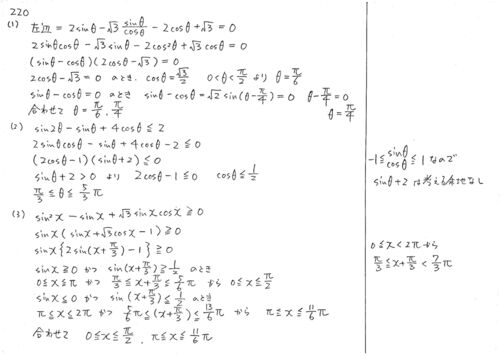 220
(1) 左辺 = 2sinθ - √3 sinθ/cosθ - 2cosθ + √3 = 0
2sinθcosθ - √3 sinθ - 2cos²θ + √3 cosθ = 0
(sinθ - cosθ)(2cosθ - √3) = 0
2cosθ - √3 = 0 のとき. cosθ = √3/2 0 < θ < π/2 より θ = π/6
sinθ - cosθ = 0 のとき sinθ - cosθ = √2 sin(θ - π/4) = 0 θ - π/4 = 0
θ = π/4
合わせて θ = π/6, π/4
(2) sin2θ - sinθ + 4cosθ ≦ 2
2sinθcosθ - sinθ + 4cosθ - 2 ≦ 0
(2cosθ - 1)(sinθ + 2) ≦ 0
sinθ + 2 > 0 より 2cosθ - 1 ≦ 0 cosθ ≦ 1/2
π/3 ≦ θ ≦ 5/3 π
-1 ≦ sinθ/cosθ ≦ 1 なので
sinθ + 2 は考える余地なし
(3) sin²x - sinx + √3 sinx cosx ≧ 0
sinx(sinx + √3 cosx - 1) ≧ 0
sinx{2sin(x + π/3) - 1} ≧ 0
sinx ≧ 0 かつ sin(x + π/3) ≧ 1/2 のとき
0 ≦ x ≦ π かつ π/3 ≦ x + π/3 ≦ 5/6 π から 0 ≦ x ≦ π/2
sinx ≦ 0 かつ sin(x + π/3) ≦ 1/2 のとき
π ≦ x ≦ 2π かつ 5/6 π ≦ (x + π/3) ≦ 13/6 π から π ≦ x ≦ 11/6 π
合わせて 0 ≦ x ≦ π/2, π ≦ x ≦ 11/6 π
0 ≦ x < 2π から
π/3 ≦ x + π/3 < 7/3 π